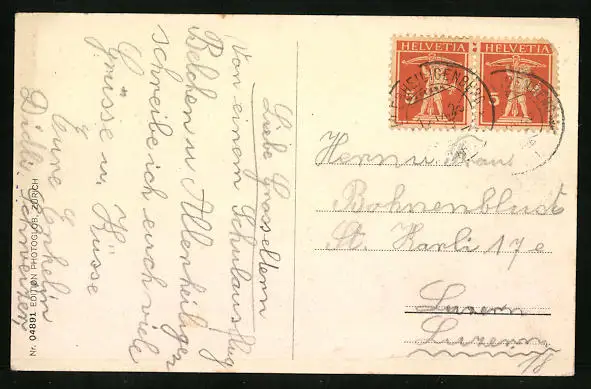 Liebe Grosseltern
Von einem Schulausflug
Belchen u Allerheiligen
schreibe ich euch viele
Grüsse u. Küsse
Eure Enkelin
HELVETIA HELVETIA
5 5
HEILIGENBERG
Herrn u Frau
Bohnenblust
St. Karli 17e
Luzern
Luzern
Nr. 04891 EDITION PHOTOGLOB, ZÜRICH